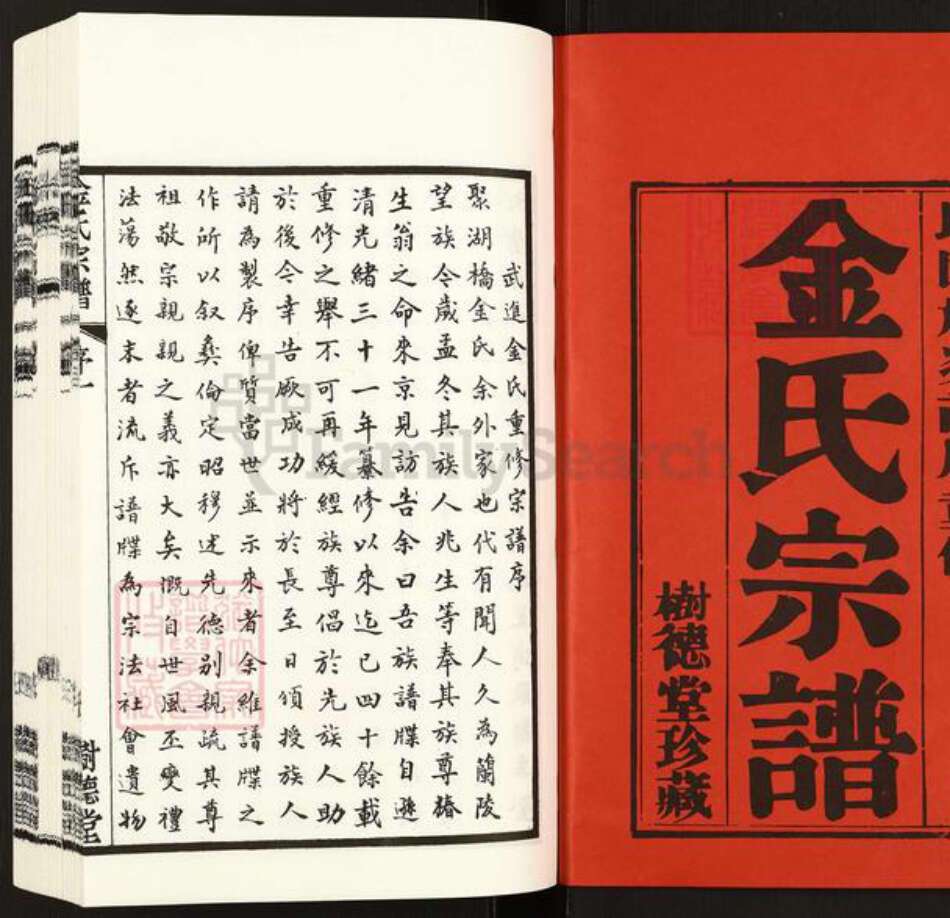 金氏宗譜
樹德堂珍藏
武進金氏重修宗譜序
聚湖橋金氏余外家也代有聞人久為蘭陵
望族今歲孟冬其族人兆生等奉其族尊椿
生翁之命來京見訪告余曰吾族譜牒自遜
清光緒三十一年纂修以來迄已四十餘載
重修之舉不可再緩經族尊倡於先族人助
於後今幸告厥成功將於長至日頒授族人
請為製序俾質當世並示來者余維譜牒之
作所以叙彝倫定昭穆述先德別親疏其尊
祖敬宗親親之義亦大矣慨自世風丕變禮
法蕩然逐末者流斥譜牒為宗法社會遺物
金氏宗譜
序一
樹德堂
FamilySearch